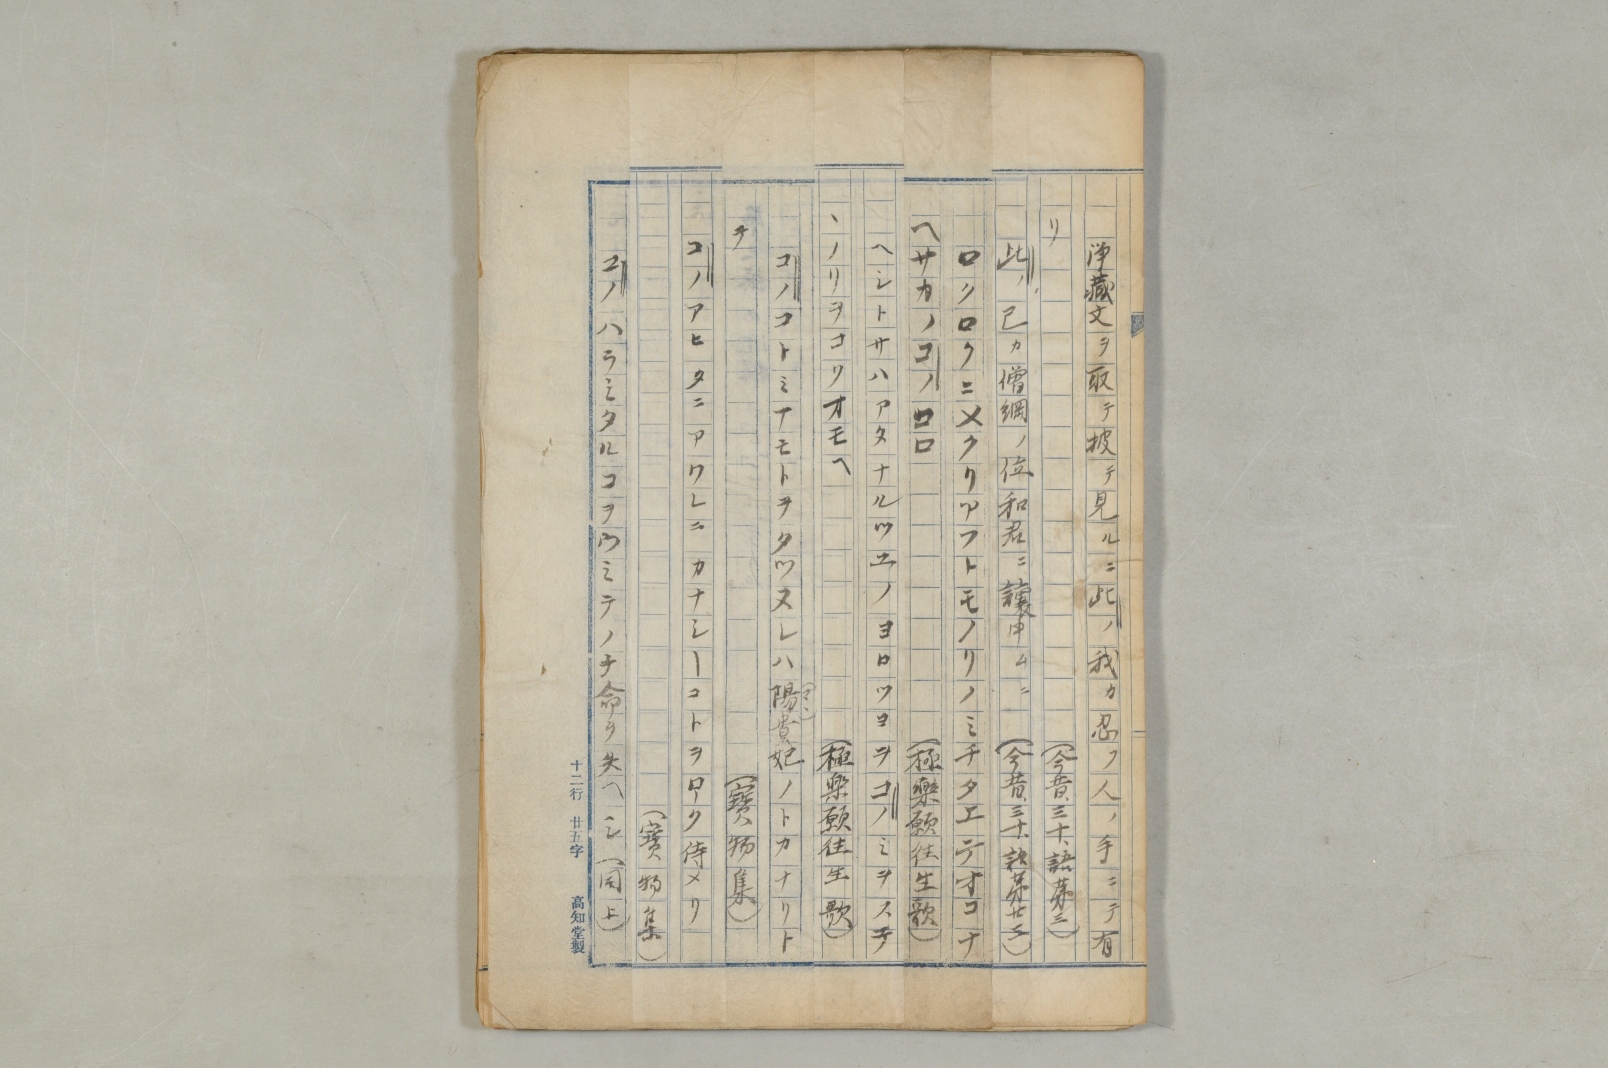 浄蔵文ヲ取テ披テ見ルニ此ノ我カ忍フ人ノ手ニテ有
リ(今昔、三十、語第三)
此ノ己カ僧綱ノ位和君ニ譲申ムニ(今昔、三十、語第廿三)
ロクロクニメクリアフトモノリノミチタエテオコナ
ヘサカノコノロロ(極樂願往生歌)
ヘシトサハアタナルツエノヨロツヨヲコノミヲステ
ヽノリヲコリオモヘ(極樂願往生歌)
コノコトミアモトヲタツヌレハ陽貴妃ノトカナリト
ヲ(寶物集)
コノアヒタニアワレニカナシーコトヲロク侍メリ
(寶物集)
コノハラミタルコヲウミテノチ命ヲ失ヘシ(同上)
十二行 廿五字 高知堂製